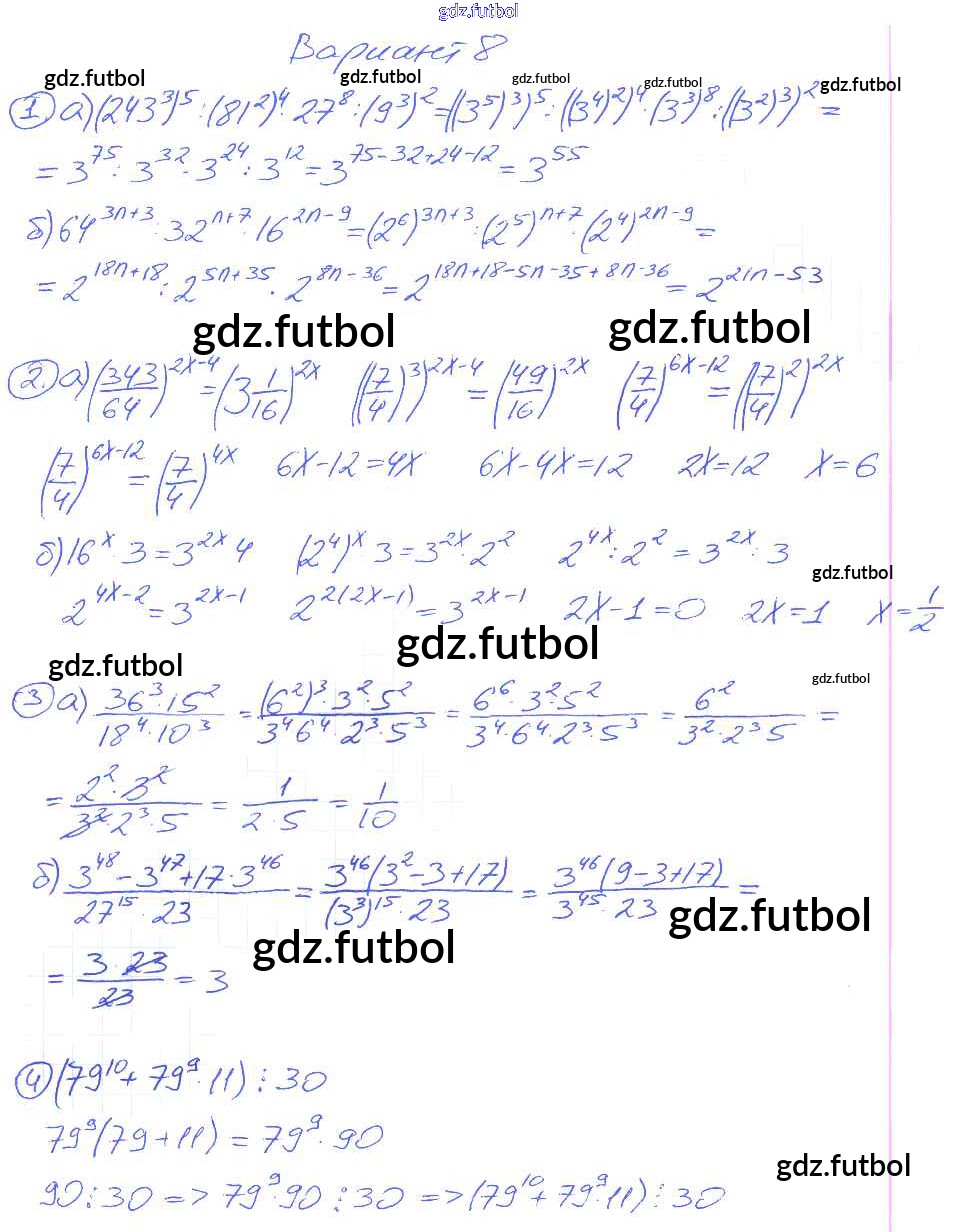 gdz.futbol
Вариант 8
gdz.futbol gdz.futbol gdz.futbol gdz.futbol gdz.futbol
1 а) (243³)⁵ : (81²)⁴ · 27⁸ : (9³)² = ((3⁵)³)⁵ : ((3⁴)²)⁴ · (3³)⁸ : ((3²)³)² =
= 3⁷⁵ : 3³² · 3²⁴ : 3¹² = 3^(75-32+24-12) = 3⁵⁵
б) 64^(3n+3) : 32^(n+7) · 16^(2n-9) = (2⁶)^(3n+3) : (2⁵)^(n+7) · (2⁴)^(2n-9) =
= 2^(18n+18) : 2^(5n+35) · 2^(8n-36) = 2^(18n+18-5n-35+8n-36) = 2^(21n-53)
gdz.futbol gdz.futbol
2. а) (343/64)^(2x-4) = (3 1/16)^(2x) ((7/4)³)^(2x-4) = (49/16)^(2x) (7/4)^(6x-12) = ((7/4)²)^(2x)
(7/4)^(6x-12) = (7/4)^(4x) 6x-12=4x 6x-4x=12 2x=12 x=6
б) 16^x · 3 = 3^(2x) · 4 (2⁴)^x · 3 = 3^(2x) · 2² 2^(4x) : 2² = 3^(2x) : 3
gdz.futbol
2^(4x-2) = 3^(2x-1) 2^(2(2x-1)) = 3^(2x-1) 2x-1=0 2x=1 x=1/2
gdz.futbol
gdz.futbol gdz.futbol
3 а) (36³·15²)/(18⁴·10³) = ((6²)³·3²·5²)/(3⁴·6⁴·2³·5³) = (6⁶·3²·5²)/(3⁴·6⁴·2³·5³) = 6²/(3²·2³·5) =
= (2²·3²)/(3²·2³·5) = 1/(2·5) = 1/10
б) (3⁴⁸-3⁴⁷+17·3⁴⁶)/(27¹⁵·23) = (3⁴⁶(3²-3+17))/((3³)¹⁵·23) = (3⁴⁶(9-3+17))/(3⁴⁵·23) =
gdz.futbol
gdz.futbol
= (3·23)/23 = 3
4 (79¹⁰+79⁹·11) ⋮ 30
79⁹(79+11) = 79⁹·90
gdz.futbol
90⋮30 => 79⁹·90⋮30 => (79¹⁰+79⁹·11)⋮30